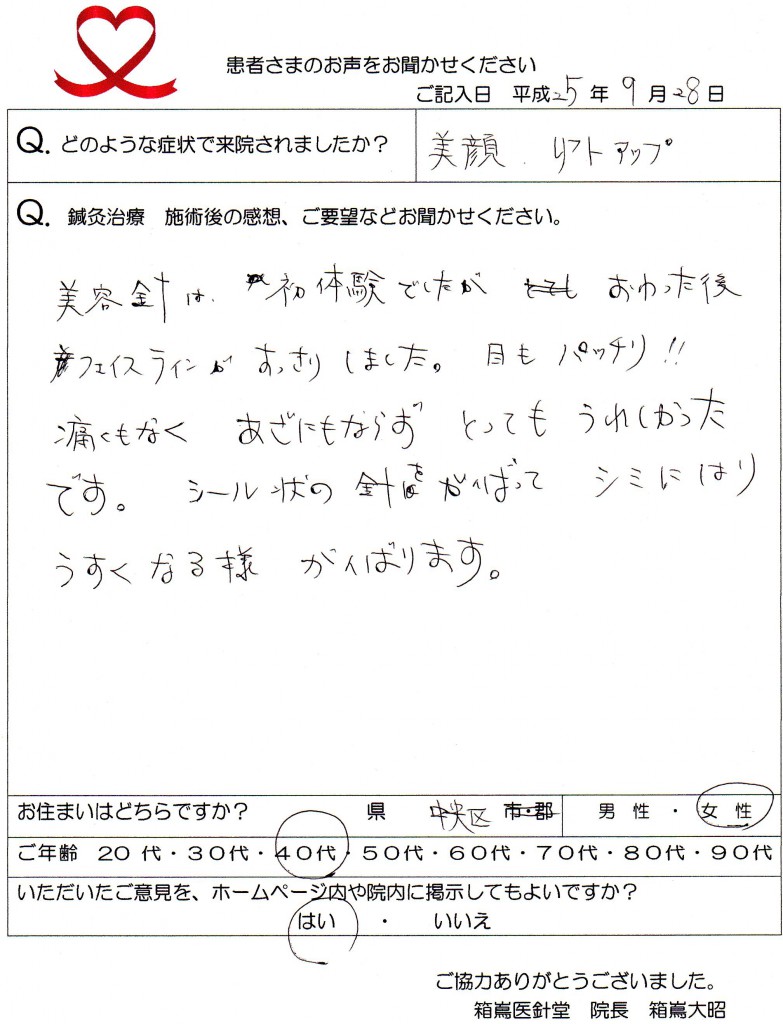 患者さまのお声をお聞かせください
ご記入日 平成25年9月28日
Q. どのような症状で来院されましたか？
美顔．リフトアップ
Q. 鍼灸治療 施術後の感想、ご要望などお聞かせください。
美容針は、初体験でしたが とても おわった後
フェイスラインが すっきりしました。 目も パッチリ!!
痛くもなく あざにもならず とっても うれしかった
です。 シール状の 針を がんばって シミにはり
うすくなる様 がんばります。
お住まいはどちらですか？ 県 中央区 市・郡 男性・女性
ご年齢 20代・30代・40代・50代・60代・70代・80代・90代
いただいたご意見を、ホームページ内や院内に掲示してもよいですか？
はい ・ いいえ
ご協力ありがとうございました。
箱嶌医針堂 院長 箱嶌大昭